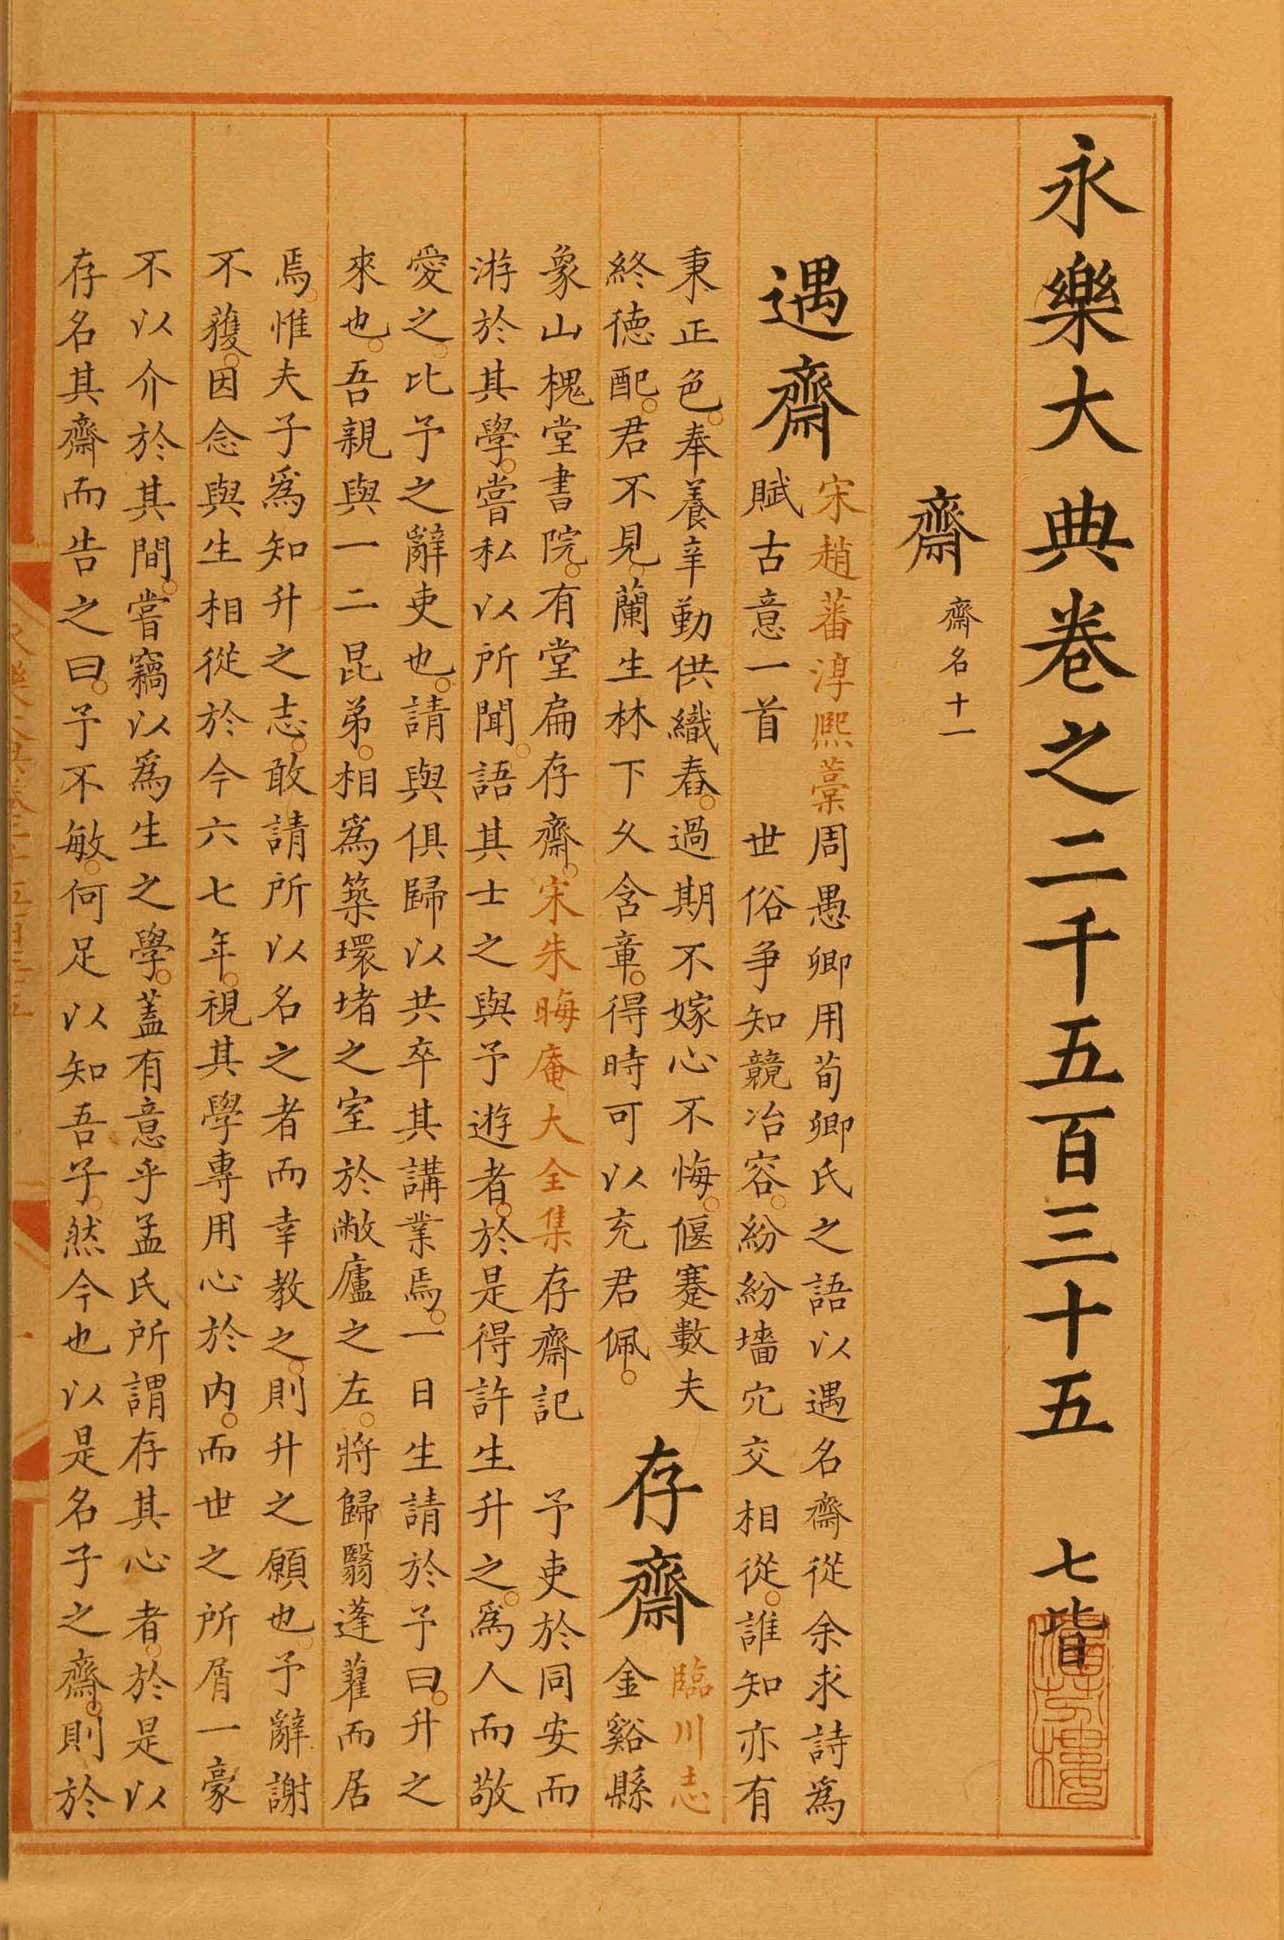 永樂大典卷之二千五百三十五 七皆
齋 齋名十一
遇齋 宋趙蕃淳熙藁周愚卿用荀卿氏之語以遇名齋從余求詩爲
賦古意一首 世俗爭知競冶容紛紛墻穴交相從誰知亦有
秉正色奉養辛勤供織舂過期不嫁心不悔偃蹇數夫
終德配君不見蘭生林下久含章得時可以充君佩 存齋 臨川志
金谿縣
象山槐堂書院有堂扁存齋宋朱晦庵大全集存齋記 予吏於同安而
游於其學嘗私以所聞語其士之與予遊者於是得許生升之爲人而敬
愛之比予之辭吏也請與俱歸以共卒其講業焉一日生請於予曰升之
來也吾親與一二昆弟相爲築環堵之室於敝廬之左將歸翳蓬藋而居
焉惟夫子爲知升之志敢請所以名之者而幸教之則升之願也予辭謝
不獲因念與生相從於今六七年視其學專用心於內而世之所屑一豪
不以介於其間嘗竊以爲生之學蓋有意乎孟氏所謂存其心者於是以
存名其齋而告之曰予不敏何足以知吾子然今也以是名子之齋則於